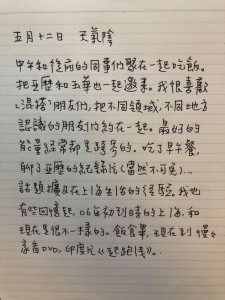 五月十二日 天氣陰
中午和從前的同事們聚在一起吃飯。
把亞歷和玉華也一起邀来。我很喜歡
「混搭」朋友们,把不同領域、不同地方
認識的朋友们约在一起。最好的
能量經常都是跨界的。吃了早午餐,
聊了亞歷的紀錄片(當然不可免)...
話題擴及在上海生活的经验。我也
有些回憶起,06年初到時的上海,和
現在是很不一樣的。飯食畢,現在到
家看DVD,印度片《起跑线》。